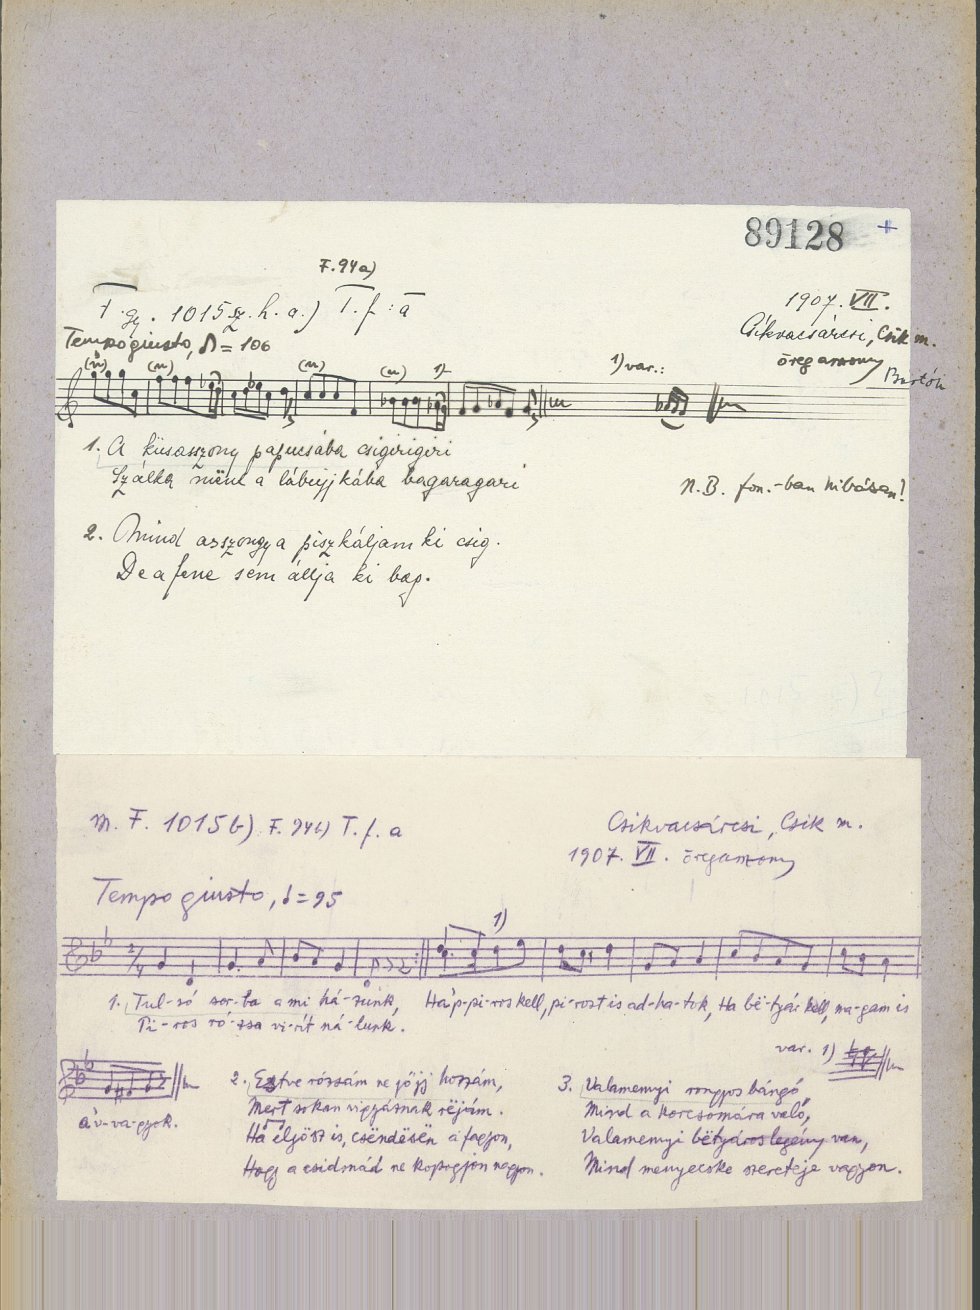 89128 +
F. 94a)
T. gy. 1015 sz. h. a.) T. f: a
1907. VII.
Csíkvacsárcsi, Csík m.
öregasszony
Bartók
Tempo giusto, ♪ = 106
1) var.:
1)
1. A kisasszony papucsába csigirigiri
Szálka mënt a lábujjkába bagaragari
N.B. fon.-ban hibásan!
2. Mind asszongya piszkáljam ki csig.
De a fene sem állja ki bag.
M. F. 1015 b) F. 94b) T. f. a
Csikvacsárcsi, Csik m.
1907. VII. öregasszony
Tempo giusto, ♩ = 95
1)
1. Tul-só sor-ba a mi há-zunk, Háp-pi-ros kell, pi-rost is ad-ha-tok, Ha bë-tyár kell, ma-gam is
Pi-ros ró-zsa vi-rít ná-lunk.
var. 1)
áv-va-gyok.
2. Estve rózsám ne jőjj hozzám,
Mert sokan vigyáznak rëjám.
Ha eljősz is, csëndësën á fagyon,
Hogy a csidmád ne kopogjon nagyon.
3. Valamenyi rongyos bángó
Mind a korcsomára való,
Valamenyi bëtyáros legény van,
Mind menyecske szeretője vagyon.